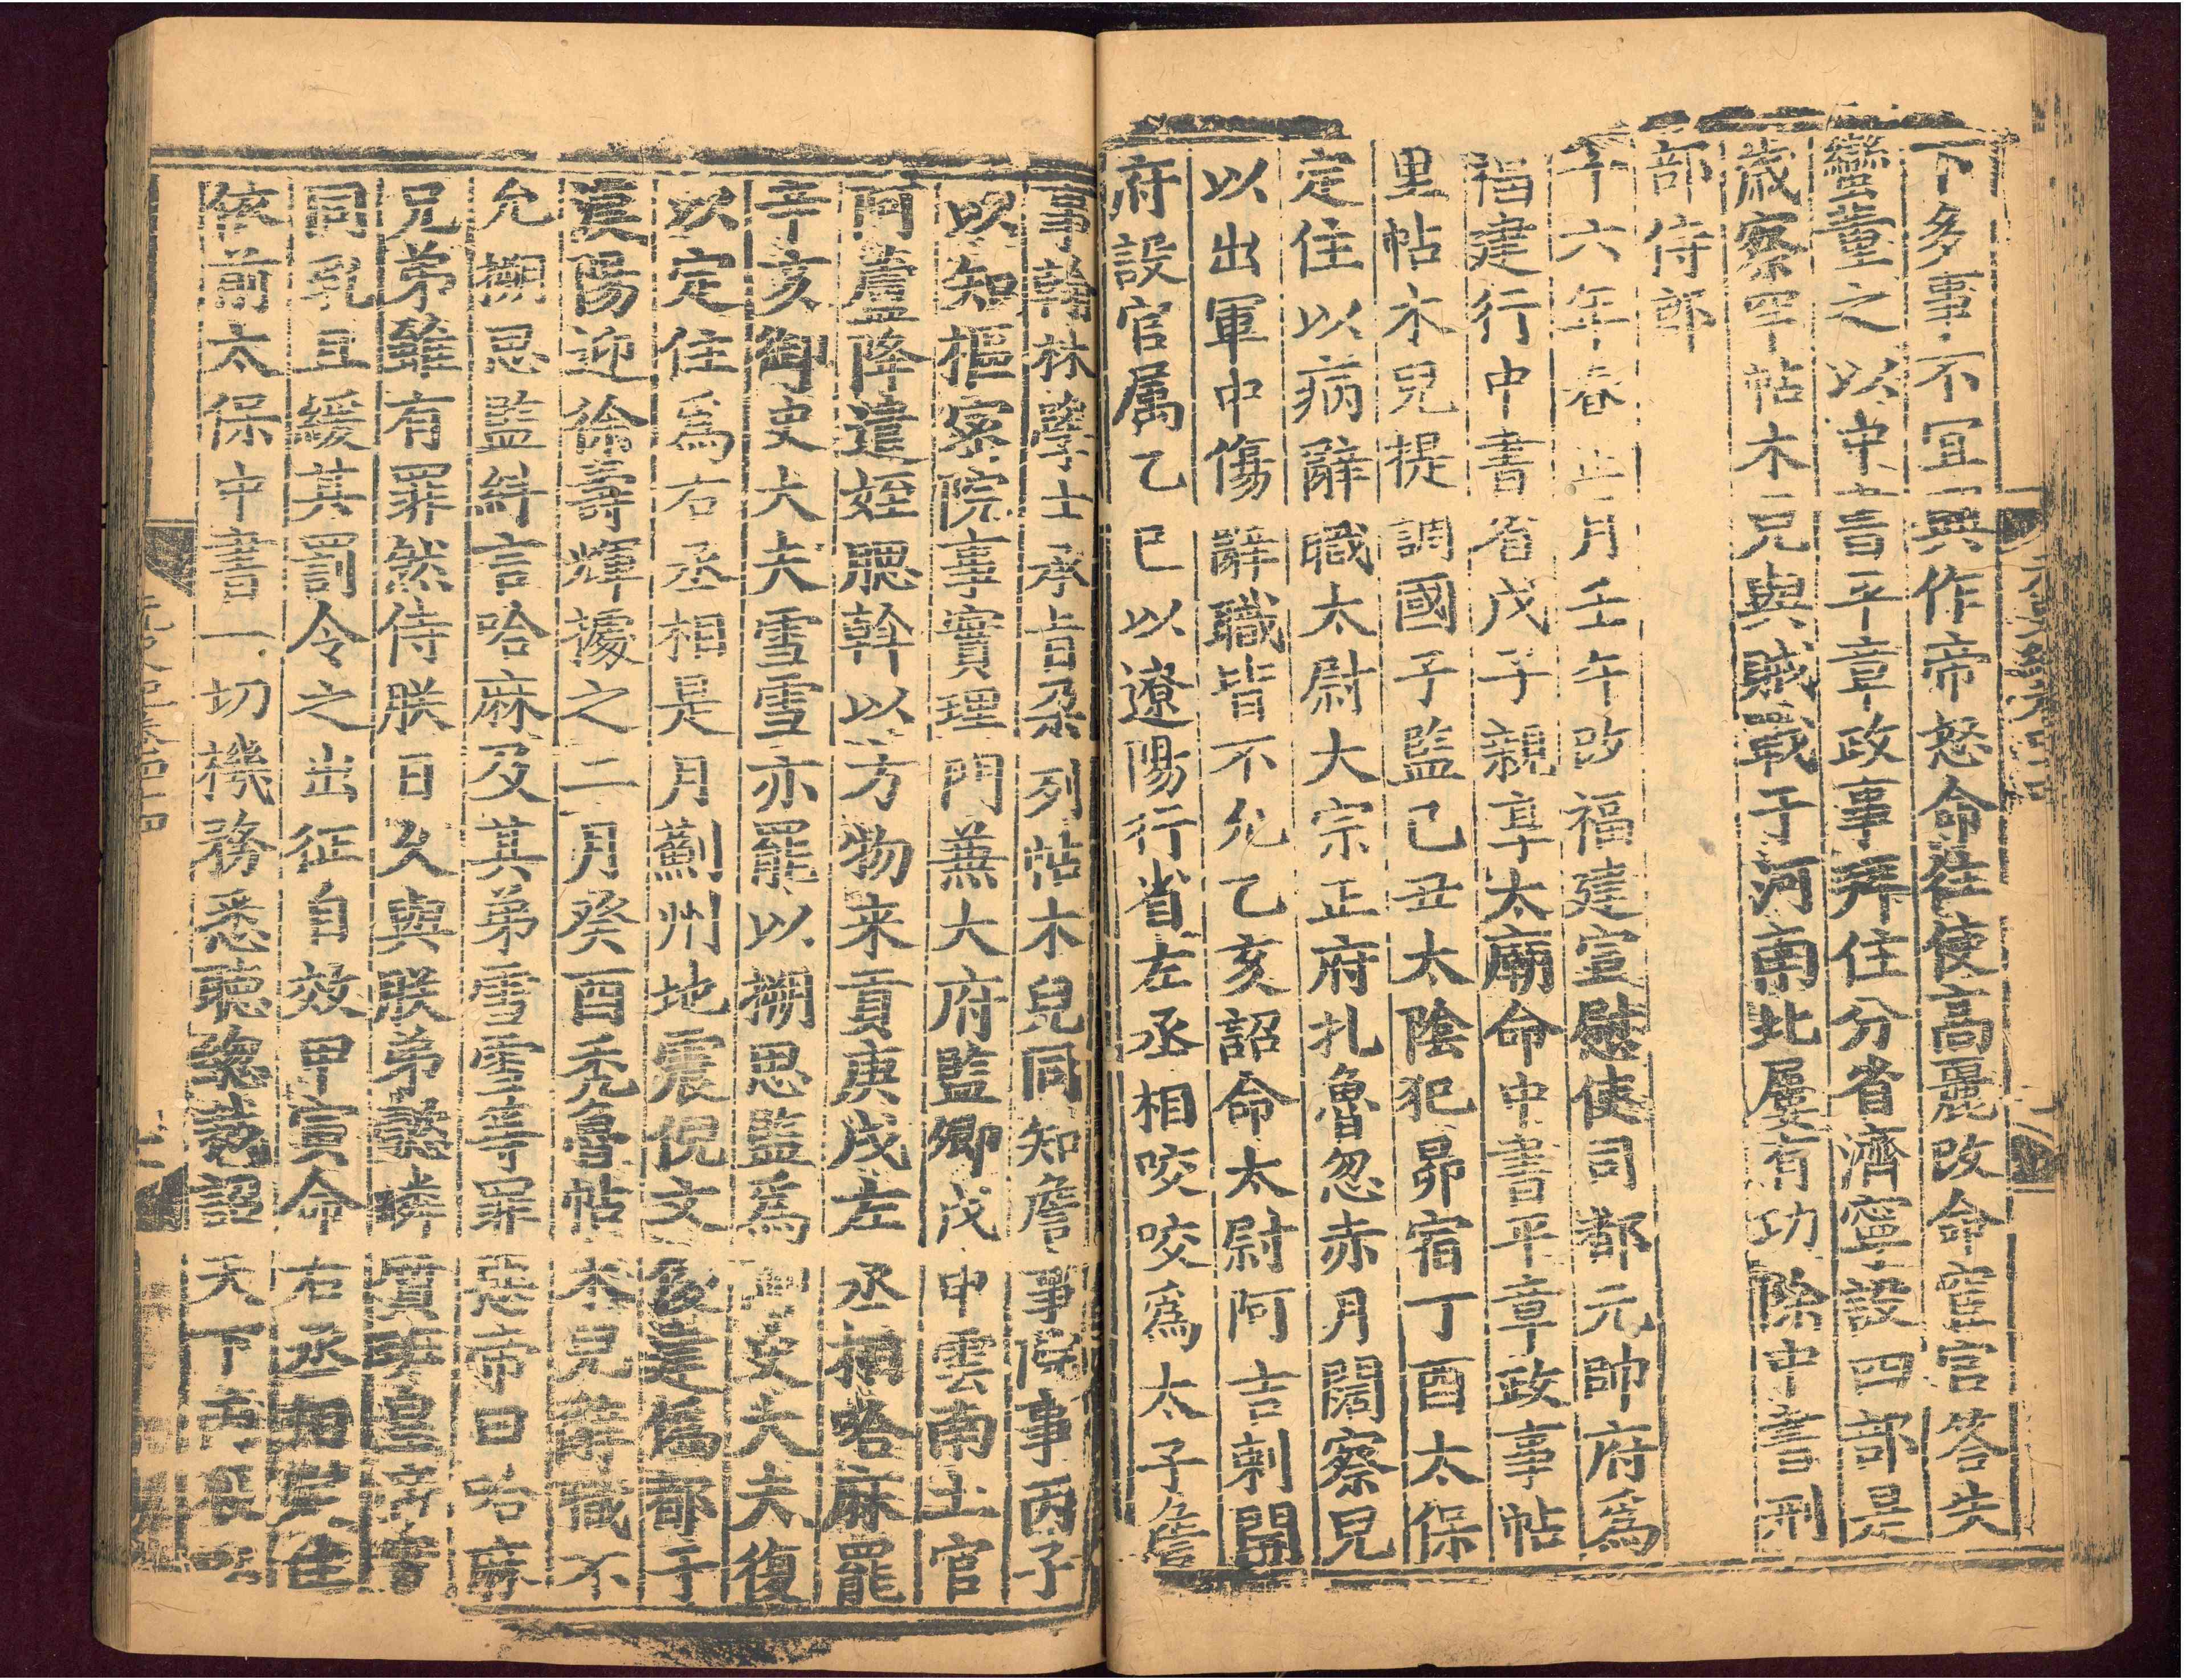 下多事不宜興作帝怒命往使高麗改命宦官答失
蠻董之以中書平章政事拜住分省濟寧設四部是
歲察罕帖木兒與賊戰于河南北屢有功除中書刑
部侍郎
十六年春正月壬午改福建宣慰使司都元帥府爲
福建行中書省戊子親享太廟命中書平章政事帖
里帖木兒提調國子監己丑太陰犯昴宿丁酉太保
定住以病辭職太尉大宗正府扎魯忽赤月闊察兒
以出軍中傷辭職皆不允乙亥詔命太尉阿吉剌開
府設官属乙巳以遼陽行省左丞相咬咬爲太子詹
事翰林學士承旨朶列帖木兒同知詹事院事丙子
以知樞密院事實理門兼大府監卿戊申雲南土官
阿蘆降遣姪腮斡以方物来貢庚戌左丞相哈麻罷
辛亥御史大夫雪雪亦罷以搠思監爲御史大夫復
以定住爲右丞相是月薊州地震倪文俊建僞都于
漢陽迎徐壽輝據之二月癸酉禿魯帖木兒辭職不
允搠思監糾言哈麻及其弟雪雪等罪惡帝曰哈麻
兄弟雖有罪然侍朕日久與朕弟懿璘質班皇帝實
同乳且緩其罰令之出征自效甲寅命右丞相定住
依前太保中書一切機務悉聽總裁詔天下
元史卷四十四